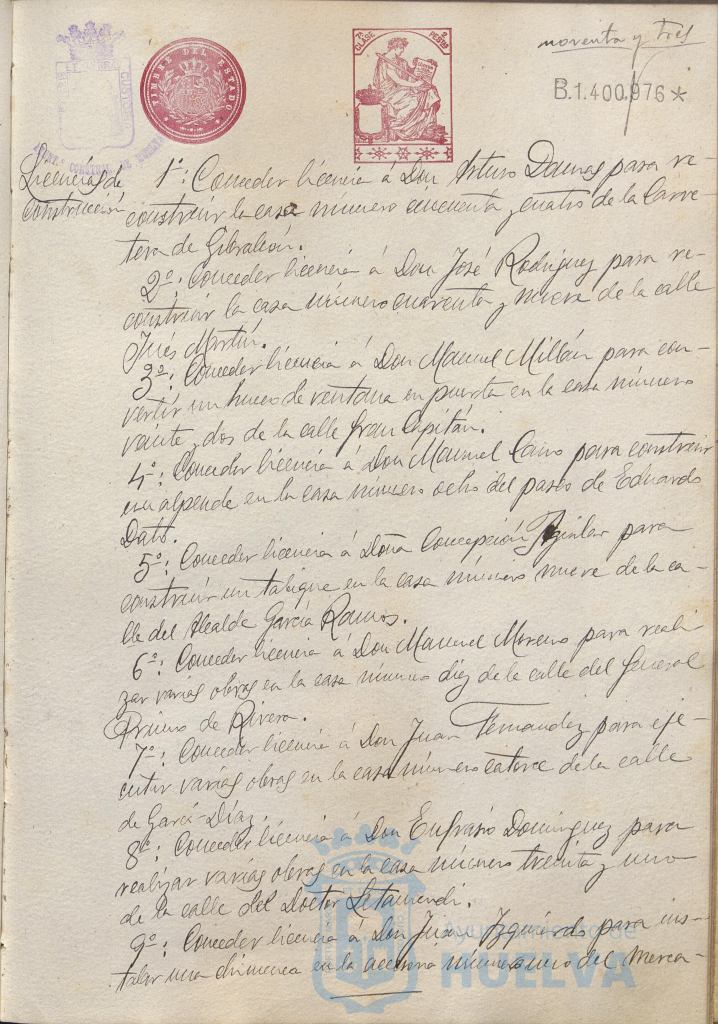 noventa y tres
7ª CLASE 2 PESTAS
TIMBRE DEL ESTADO
B.1.400.976*
Licencias de
Construcción
1º: Conceder licencia á Don Arturo Damas para re-
construir la casa número cincuenta y cuatro de la Carre-
tera de Gibraleón.
2º: Conceder licencia á Don José Rodríguez para re-
construir la casa número cuarenta y nueve de la calle
Inés Martín.
3º: Conceder licencia á Don Manuel Millán para con-
vertir un hueco de ventana en puerta en la casa número
veinte y dos de la calle Gran Capitán.
4º: Conceder licencia á Don Manuel Cano para construir
un alpende en la casa número ocho del paseo de Eduardo
Dato.
5º: Conceder licencia á Doña Concepción Aguilar para
construir un tabique en la casa número nueve de la ca-
lle del Alcalde García Ramos.
6º: Conceder licencia á Don Manuel Moreno para reali-
zar varias obras en la casa número diez de la calle del General
Primo de Rivera.
7º: Conceder licencia á Don Juan Fernandez para eje-
cutar varias obras en la casa número catorce de la calle
de García Díaz.
8º: Conceder licencia á Don Eufrasio Dominguez para
realizar varias obras en la casa número treinta y uno
de la calle del Doctor Letamendi.
9º: Conceder licencia á Don Juan Izquierdo para ins-
talar una chimenea en la accesoria número uno del Merca-
Ayuntamiento de
HUELVA